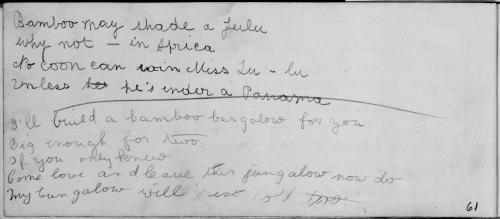 Bamboo may shade a Zulu
Why not - in Africa
No coon can win Miss Lu-lu
Unless he's under a Panama
I'll build a bamboo bungalow for you
Big enough for two
If you only knew
Come love and leave this jungalow now do
My bungalow will
61